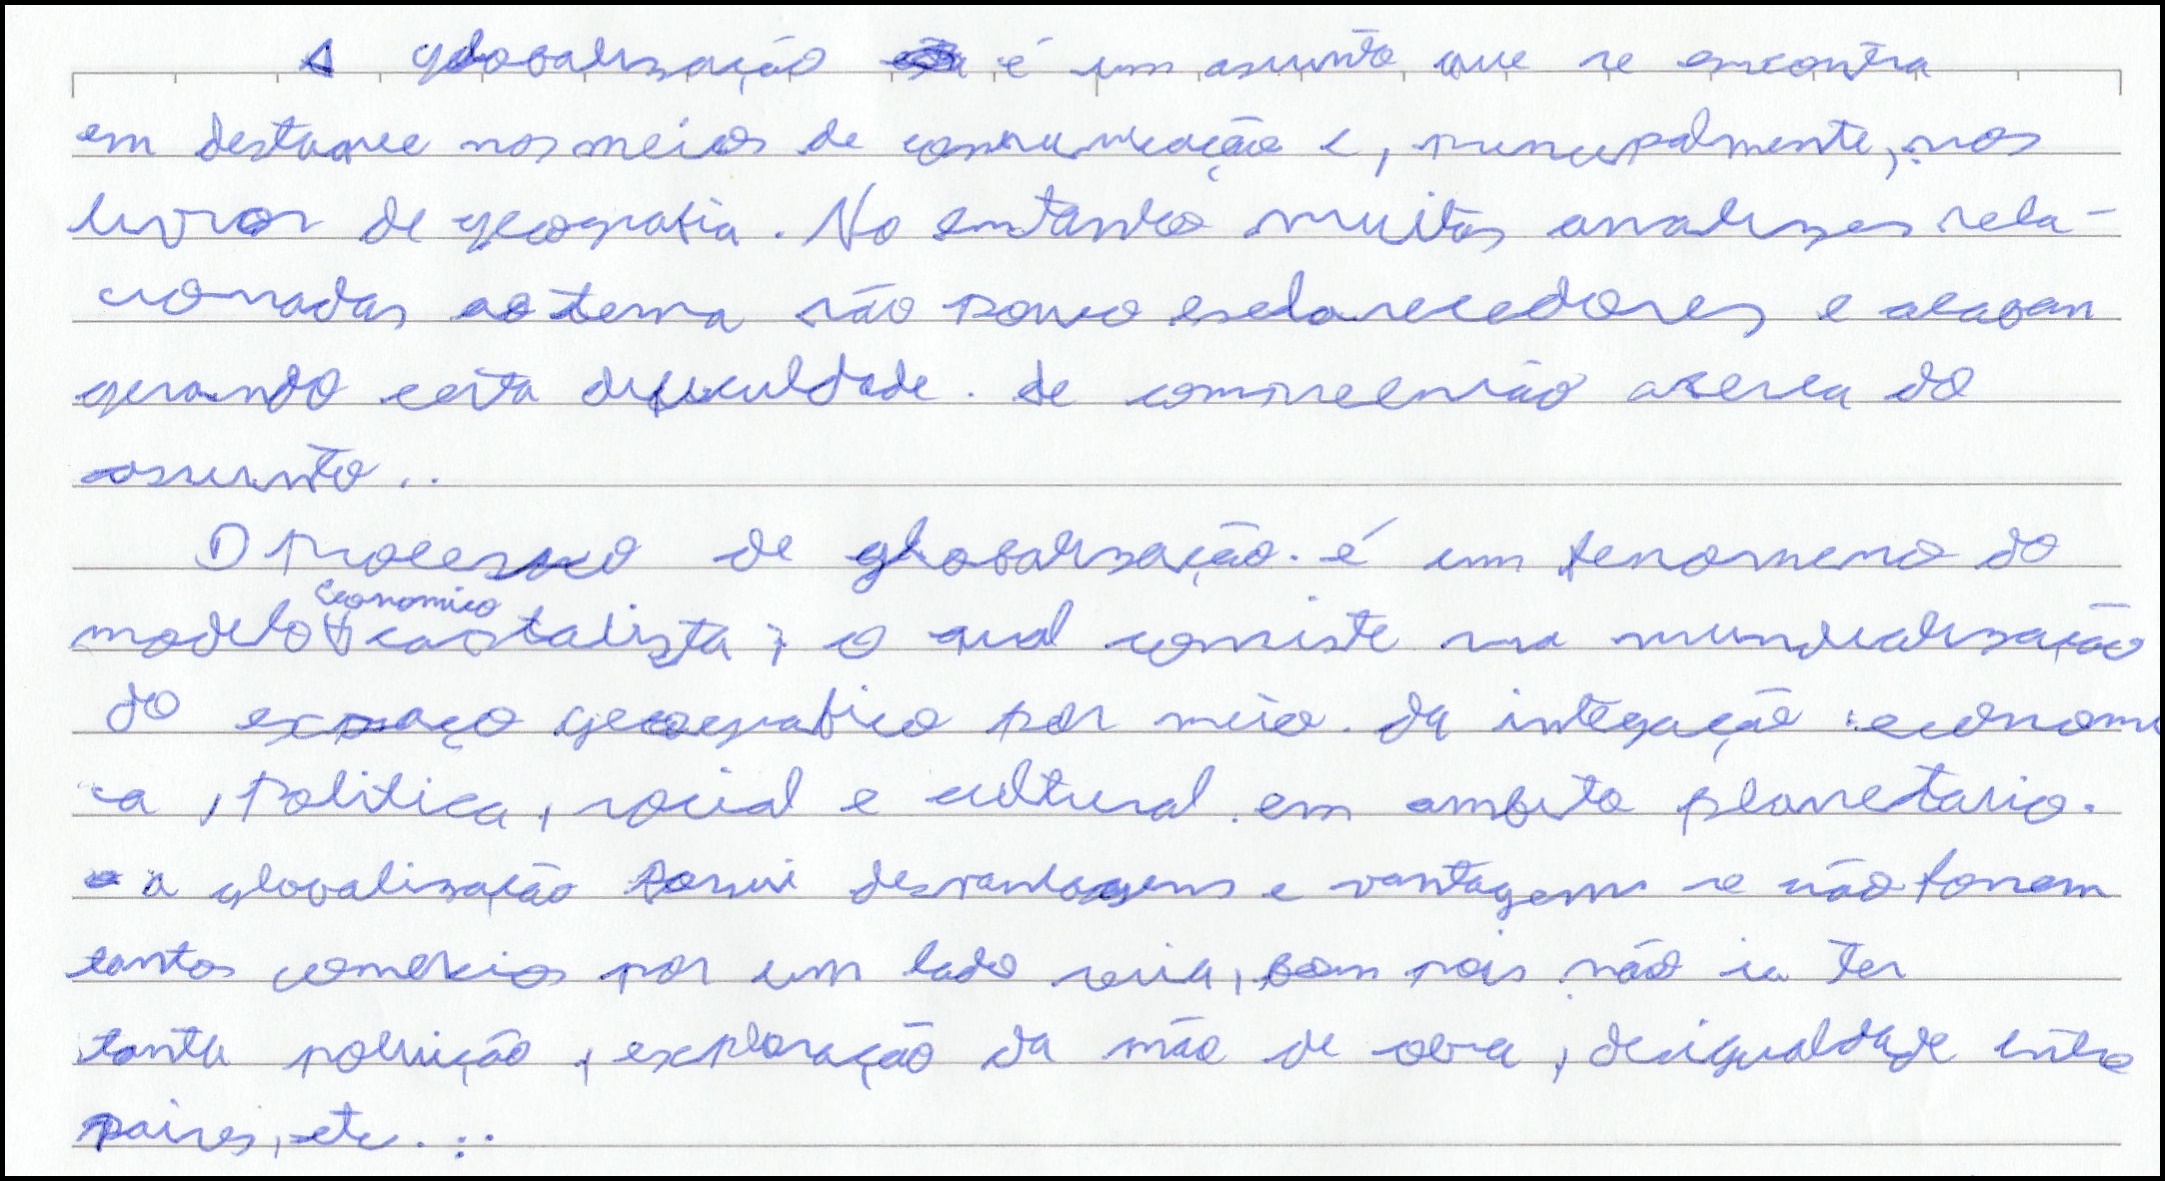 A globalização é um assunto que se encontra
em destaque nos meios de comunicação e, principalmente, nos
livros de geografia. No entanto muitas analizes rela-
cionadas ao tema são pouco esclarecedores e acabam
gerando certa dificuldade. de compreensão acerca do
assunto..
O processo de globalização. é um fenomeno do
modelo economico capitalista, o qual consiste na mundialização
do espaço geografico por meio da integação economi
ca, politica, social e cultural em ambito planetario.
a globalização possui desvantagens e vantagens se não fonem
tantos comercios por um lado seria, bom pois não ia ter
tanta poluição, exploração da mão de obra, desigualdade entre
paises, etc...